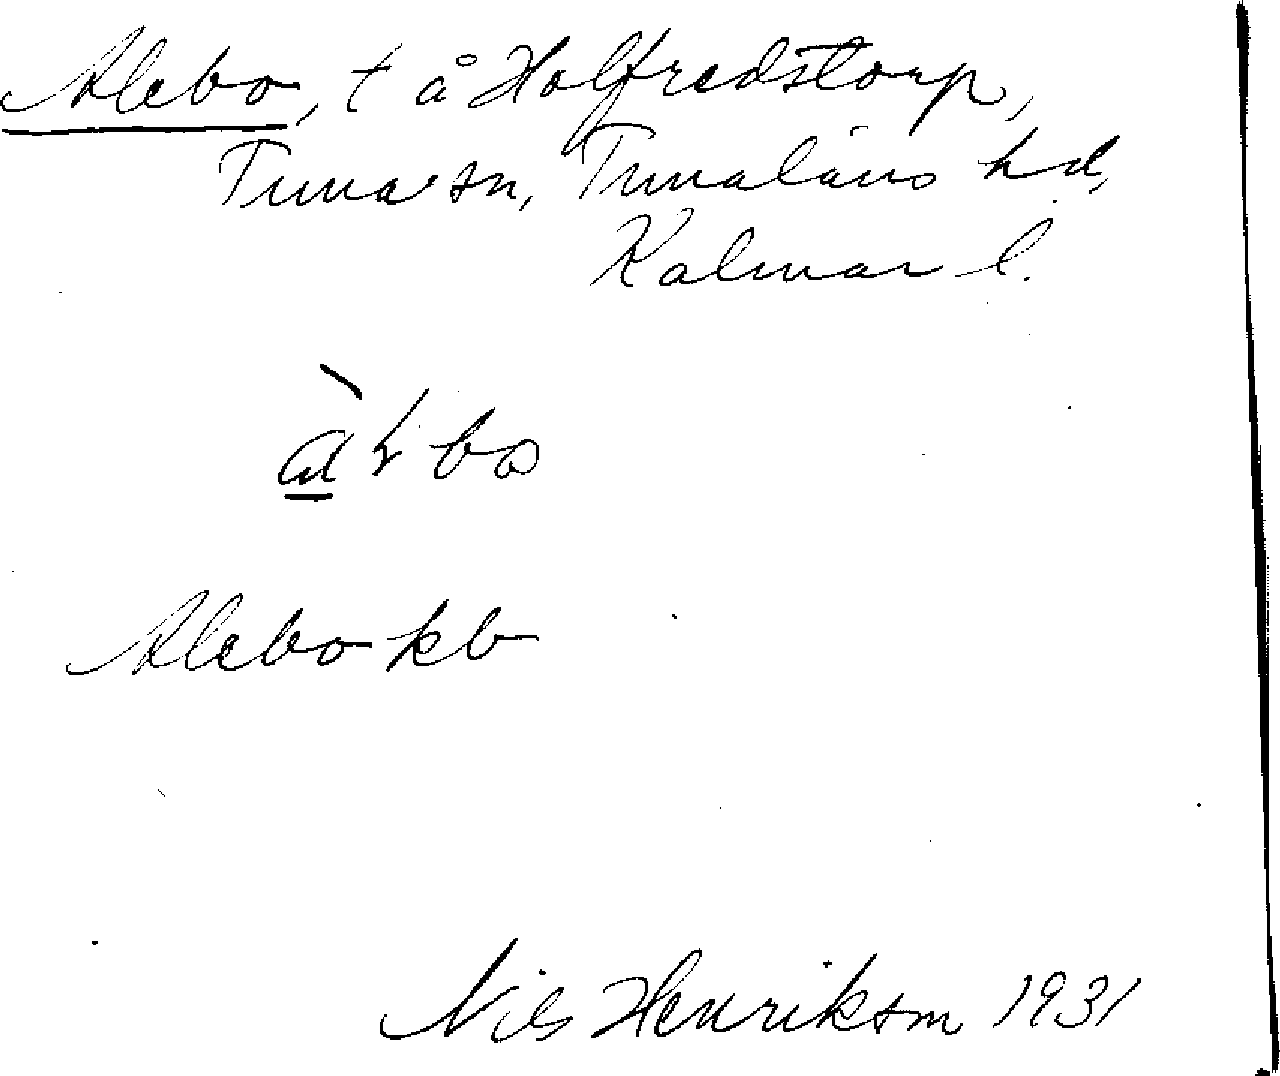 Alebo, t å Holfredstorp,
Tuna sn, Tunaläns hd,
Kalmar l.
Alebo kb
Nils Henriksm 1931